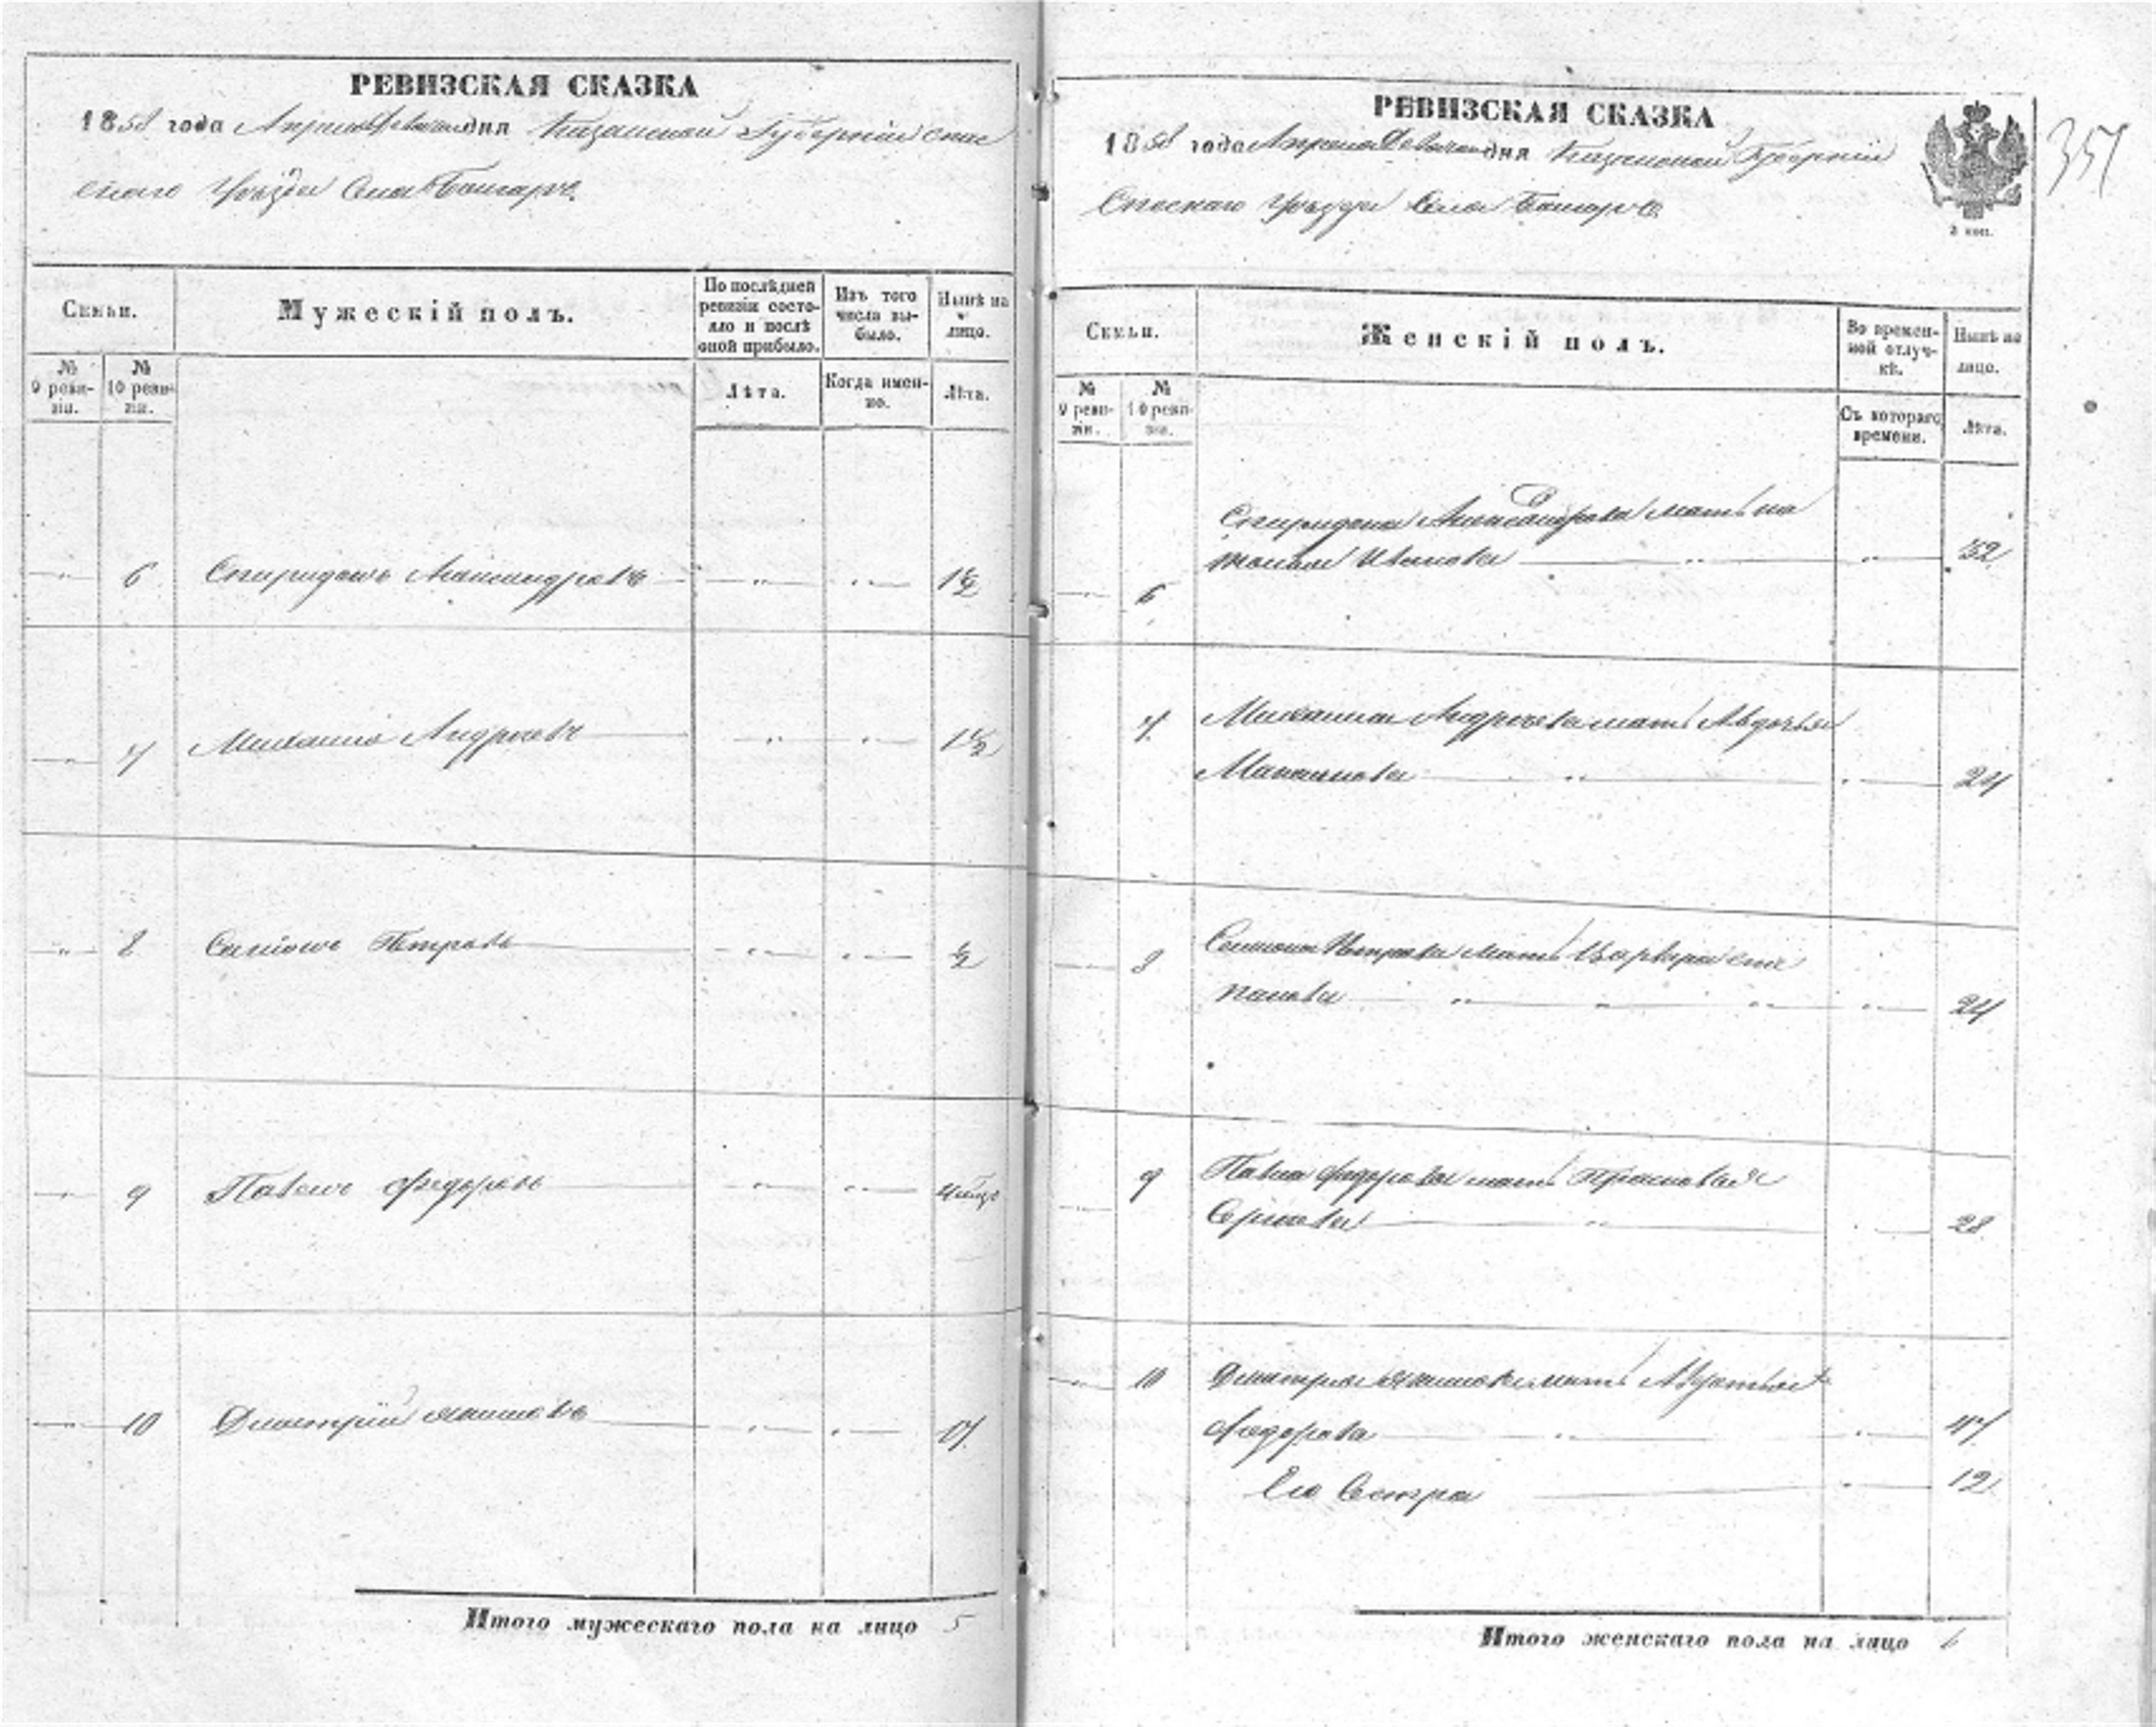 РЕВИЗСКАЯ СКАЗКА
1858 года Апреля дня Казанской Губернiи Спас
скаго Уѣзда Села Болгаръ.
Семьи.
Мужескiй полъ.
По послѣдней ревизiи состояло и послѣ оной прибыло.
Изъ того числа выбыло.
Нынѣ на лицо.
№ 9 ревизiи.
№ 10 ревизiи.
Лѣта.
Когда именно.
Лѣта.
6 Спиридонъ Александровъ 1½
7 Михаилъ Андреевъ 1½
8 Семионъ Петровъ ½
9 Павелъ Федоровъ
10 Дмитрiй
Итого мужескаго пола на лицо 5
РЕВИЗСКАЯ СКАЗКА
1858 года Апреля дня Казанской Губернiи
Спаскаго Уѣзда Села Болгаръ
3 коп.
351
Семьи.
Женскiй полъ.
Во временной отлучкѣ.
Нынѣ на лицо.
№ 9 ревизiи.
№ 10 ревизiи.
Съ котораго времени.
Лѣта.
Спиридона Александрова мать На
6 талья Иванова 32
7 Михаила Андреева мать Авдотья
24
8 Семиона Петрова мать Варвара Сте
панова 24
9 Павла Федорова мать Прасковья
Сергеева 28
10 Дмитрiя мать Авдотья
Федорова 47
Его Сестра 12
Итого женскаго пола на лицо 6